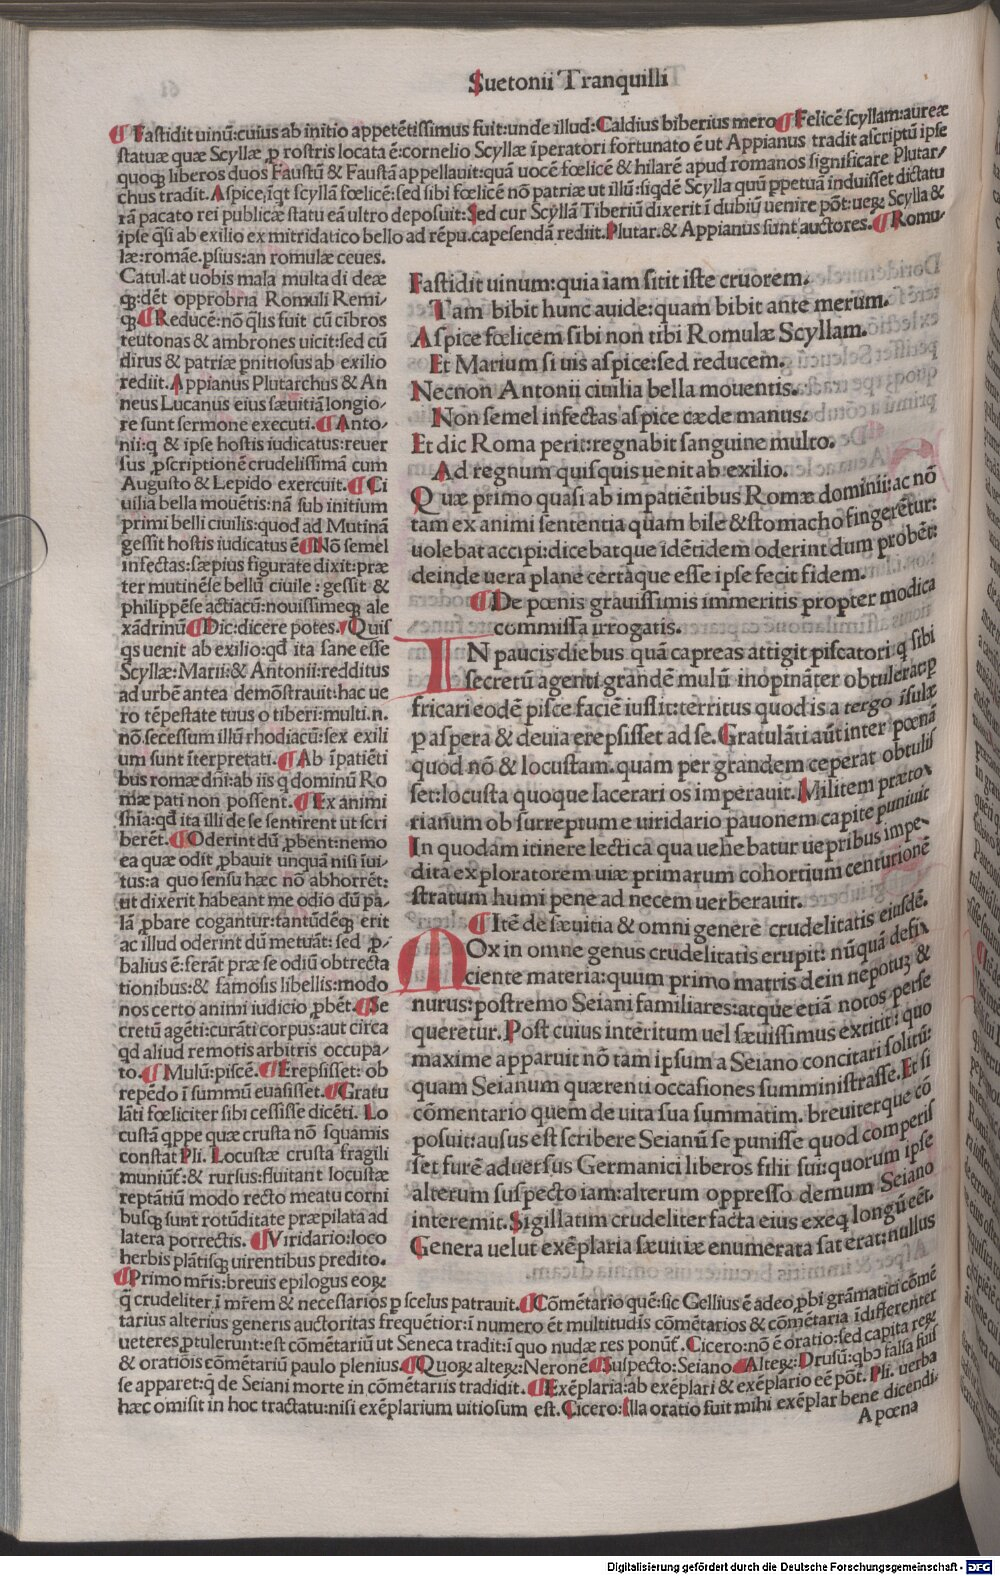 Suetonii Tranquilli
¶ Fastidit uinū:cuius ab initio appetētissimus fuit:unde illud:Caldius biberius mero ¶ Felicē scyllam:aureæ
statuæ quæ Scyllæ ꝓ rostris locata ē:cornelio Scyllæ īperatori fortunato ē ut Appianus tradit ascriptū ipse
quoqꝫ liberos duos Faustū & Faustā appellauit:quā uocē fœlicē & hilarē apud romanos significare Plutar/
chus tradit. Aspice,īqt scyllā fœlicē:sed sibi fœlicē nō patriæ ut illū:siqdē Scylla quū ꝑpetuā induisset dictatu
rā pacato rei publicæ statu eā ultro deposuit:Sed cur Scyllā Tiberiū dixerit ī dubiū uenire pōt:ueꝝ Scylla &
ipse q̄si ab exilio ex mitridatico bello ad rēpu.capesendā rediit.Plutar.& Appianus sunt auctores. ¶ Romu/
læ:romāe.ꝑsius:an romulæ ceues.
Catul.at uobis mala multa di deæ
qꝫ:dēt opprobria Romuli Remi/
qꝫ ¶ Reducē:nō q̄lis fuit cū cibros
teutonas & ambrones uicit:sed cū
dirus & patriæ ꝑnitiosus ab exilio
rediit. Appianus Plutarchus & An
neus Lucanus eius sæuitiā longio/
re sunt sermone executi. ¶ Anto/
nii:q & ipse hostis iudicatus:reuer
sus ꝓscriptionē crudelissimā cum
Augusto & Lepido exercuit. ¶ Ci
uilia bella mouētis:nā sub initium
primi belli ciuilis:quod ad Mutinā
gessit hostis iudicatus ē ¶ Nō semel
infectas:sæpius figurate dixit:præ
ter mutinēse bellū ciuile : gessit &
philippēse actiacū:nouissimeqꝫ ale
xādrinū ¶ Dic:dicere potes. ¶ Quis
qs uenit ab exilio:qđ ita sane esse
Scyllæ:Marii:& Antonii:redditus
ad urbē antea demōstrauit:hac ue
ro tēpestate tuus o tiberi:multi.n.
nō secessum illū rhodiacū:sex exili
um sunt īterpretati. ¶ Ab īpatiēti
bus romæ dn̄i:ab iis q dominū Ro
mæ pati non possent. ¶ Ex animi
sn̄ia:qđ ita illi de se sentirent ut scri
berēt. ¶ Oderint dū ꝓbent:nemo
ea quæ odit ꝓbauit unquā nisi īui/
tus:a quo sensu hæc nō abhorrēt:
ut dixerit habeant me odio dū pa/
lā ꝓbare cogantur:tantūdēqꝫ erit
ac illud oderint dū metuāt: sed ꝓ/
balius ē:ferāt præ se odiū obtrecta
tionibus:& famosis libellis:modo
nos certo animi iudicio ꝓbēt. ¶ Se
cretū agēti:curāti corpus:aut circa
qđ aliud remotis arbitris occupa/
to. ¶ Mulū:piscē. ¶ Erepsisset: ob
repēdo ī summū euasisset. ¶ Gratu
lāti fœliciter sibi cessisse dicēti. Lo
custā qppe quæ crusta nō squamis
constat Pli. Locustæ crusta fragili
muniūt̄:& rursus:fluitant locustæ
reptātiū modo recto meatu corni
busqꝫ sunt rotūditate præpilata ad
latera porrectis. ¶ Viridario:loco
herbis plātisqꝫ uirentibus predito.
¶ Primo mr̄is:breuis epilogus eoꝝ
Fastidit uinum:quia iam sitit iste cruorem.
Tam bibit hunc auide:quam bibit ante merum.
Aspice fœlicem sibi non tibi Romulæ Scyllam.
Et Marium si uis aspice:sed reducem.
Necnon Antonii ciuilia bella mouentis.
Non semel infectas aspice cæde manus:
Et dic Roma perit:regnabit sanguine multo.
Ad regnum quisquis uenit ab exilio.
Quæ primo quasi ab impatiētibus Romæ dominii:ac nō
tam ex animi sententia quam bile & stomacho fingerētur:
uolebat accipi:dicebatque idētidem oderint dum probēt:
deinde uera plane certaque esse ipse fecit fidem.
¶ De pœnis grauissimis immeritis propter modica
commissa irrogatis.
IN paucis diebus quā capreas attigit piscatori q sibi
secretū agenti grandē mulū inopināter obtulerat:ꝑ
fricari eodē pisce faciē iussit:territus quod is a tergo īsulæ
ꝑ aspera & deuia erepsisset ad se. Gratulāti aūt inter pœnā
quod nō & locustam.quam per grandem ceperat obtulis
set:locusta quoque lacerari os imperauit. Militem præto/
rianum ob surreptum e uiridario pauonem capite puniuit
In quodam itinere lectica qua uehebatur uepribus impe/
dita exploratorem uiæ primarum cohortium centurionē
stratum humi pene ad necem uerberauit.
¶ Itē de sæuitia & omni generē crudelitatis eiusdē.
MOx in omne genus crudelitatis erupit: nūquā defi/
ciente materia:quum primo matris dein nepotuꝫ &
nurus:postremo Seiani familiares:atque etiā notos perse
queretur. Post cuius interitum uel sæuissimus extitit: quo
maxime apparuit nō tam ipsum a Seiano concitari solitū:
quam Seianum quærenti occasiones sumministrasse. Et si
cōmentario quem de uita sua summatim. breuiterque cō
posuit:ausus est scribere Seianū se punisse quod comperis
set furē aduersus Germanici liberos filii sui:quorum ipse
alterum suspecto iam:alterum oppresso demum Seiano
interemit. Sigillatim crudeliter facta eius exeq longū eēt.
Genera uelut exēplaria sæuitiæ enumerata sat erat:nullus
q̄ crudeliter ī mr̄em & necessarios ꝑ scelus patrauit. ¶ Cōmētario quē:sic Gellius ē adeo ꝓbi grāmatici cōmē
tarius alterius generis auctoritas frequētior:ī numero ēt multitudis cōmētarios & cōmētaria īdifferenter
ueteres ꝓtulerunt:est cōmētariū ut Seneca tradit:ī quo nudæ res ponūt̄. Cicero:nō ē oratio:sed capita reꝝ
& oratiois cōmētariū paulo plenius. ¶ Quoꝝ alteꝝ:Neronē ¶ Suspecto:Seiano ¶ Alteꝝ:Drusū:qbꝰ falsa fuis
se apparet:q̄ de Seiani morte in cōmētariis tradidit. ¶ Exēplaria:ab exēplari & exēplario eē pōt. Pli. uerba
hæc omisit in hoc tractatu:nisi exēplarium uitiosum est. Cicero:Illa oratio fuit mihi exēplar bene dicendi/
A pœna
Digitalisierung gefördert durch die Deutsche Forschungsgemeinschaft - DFG